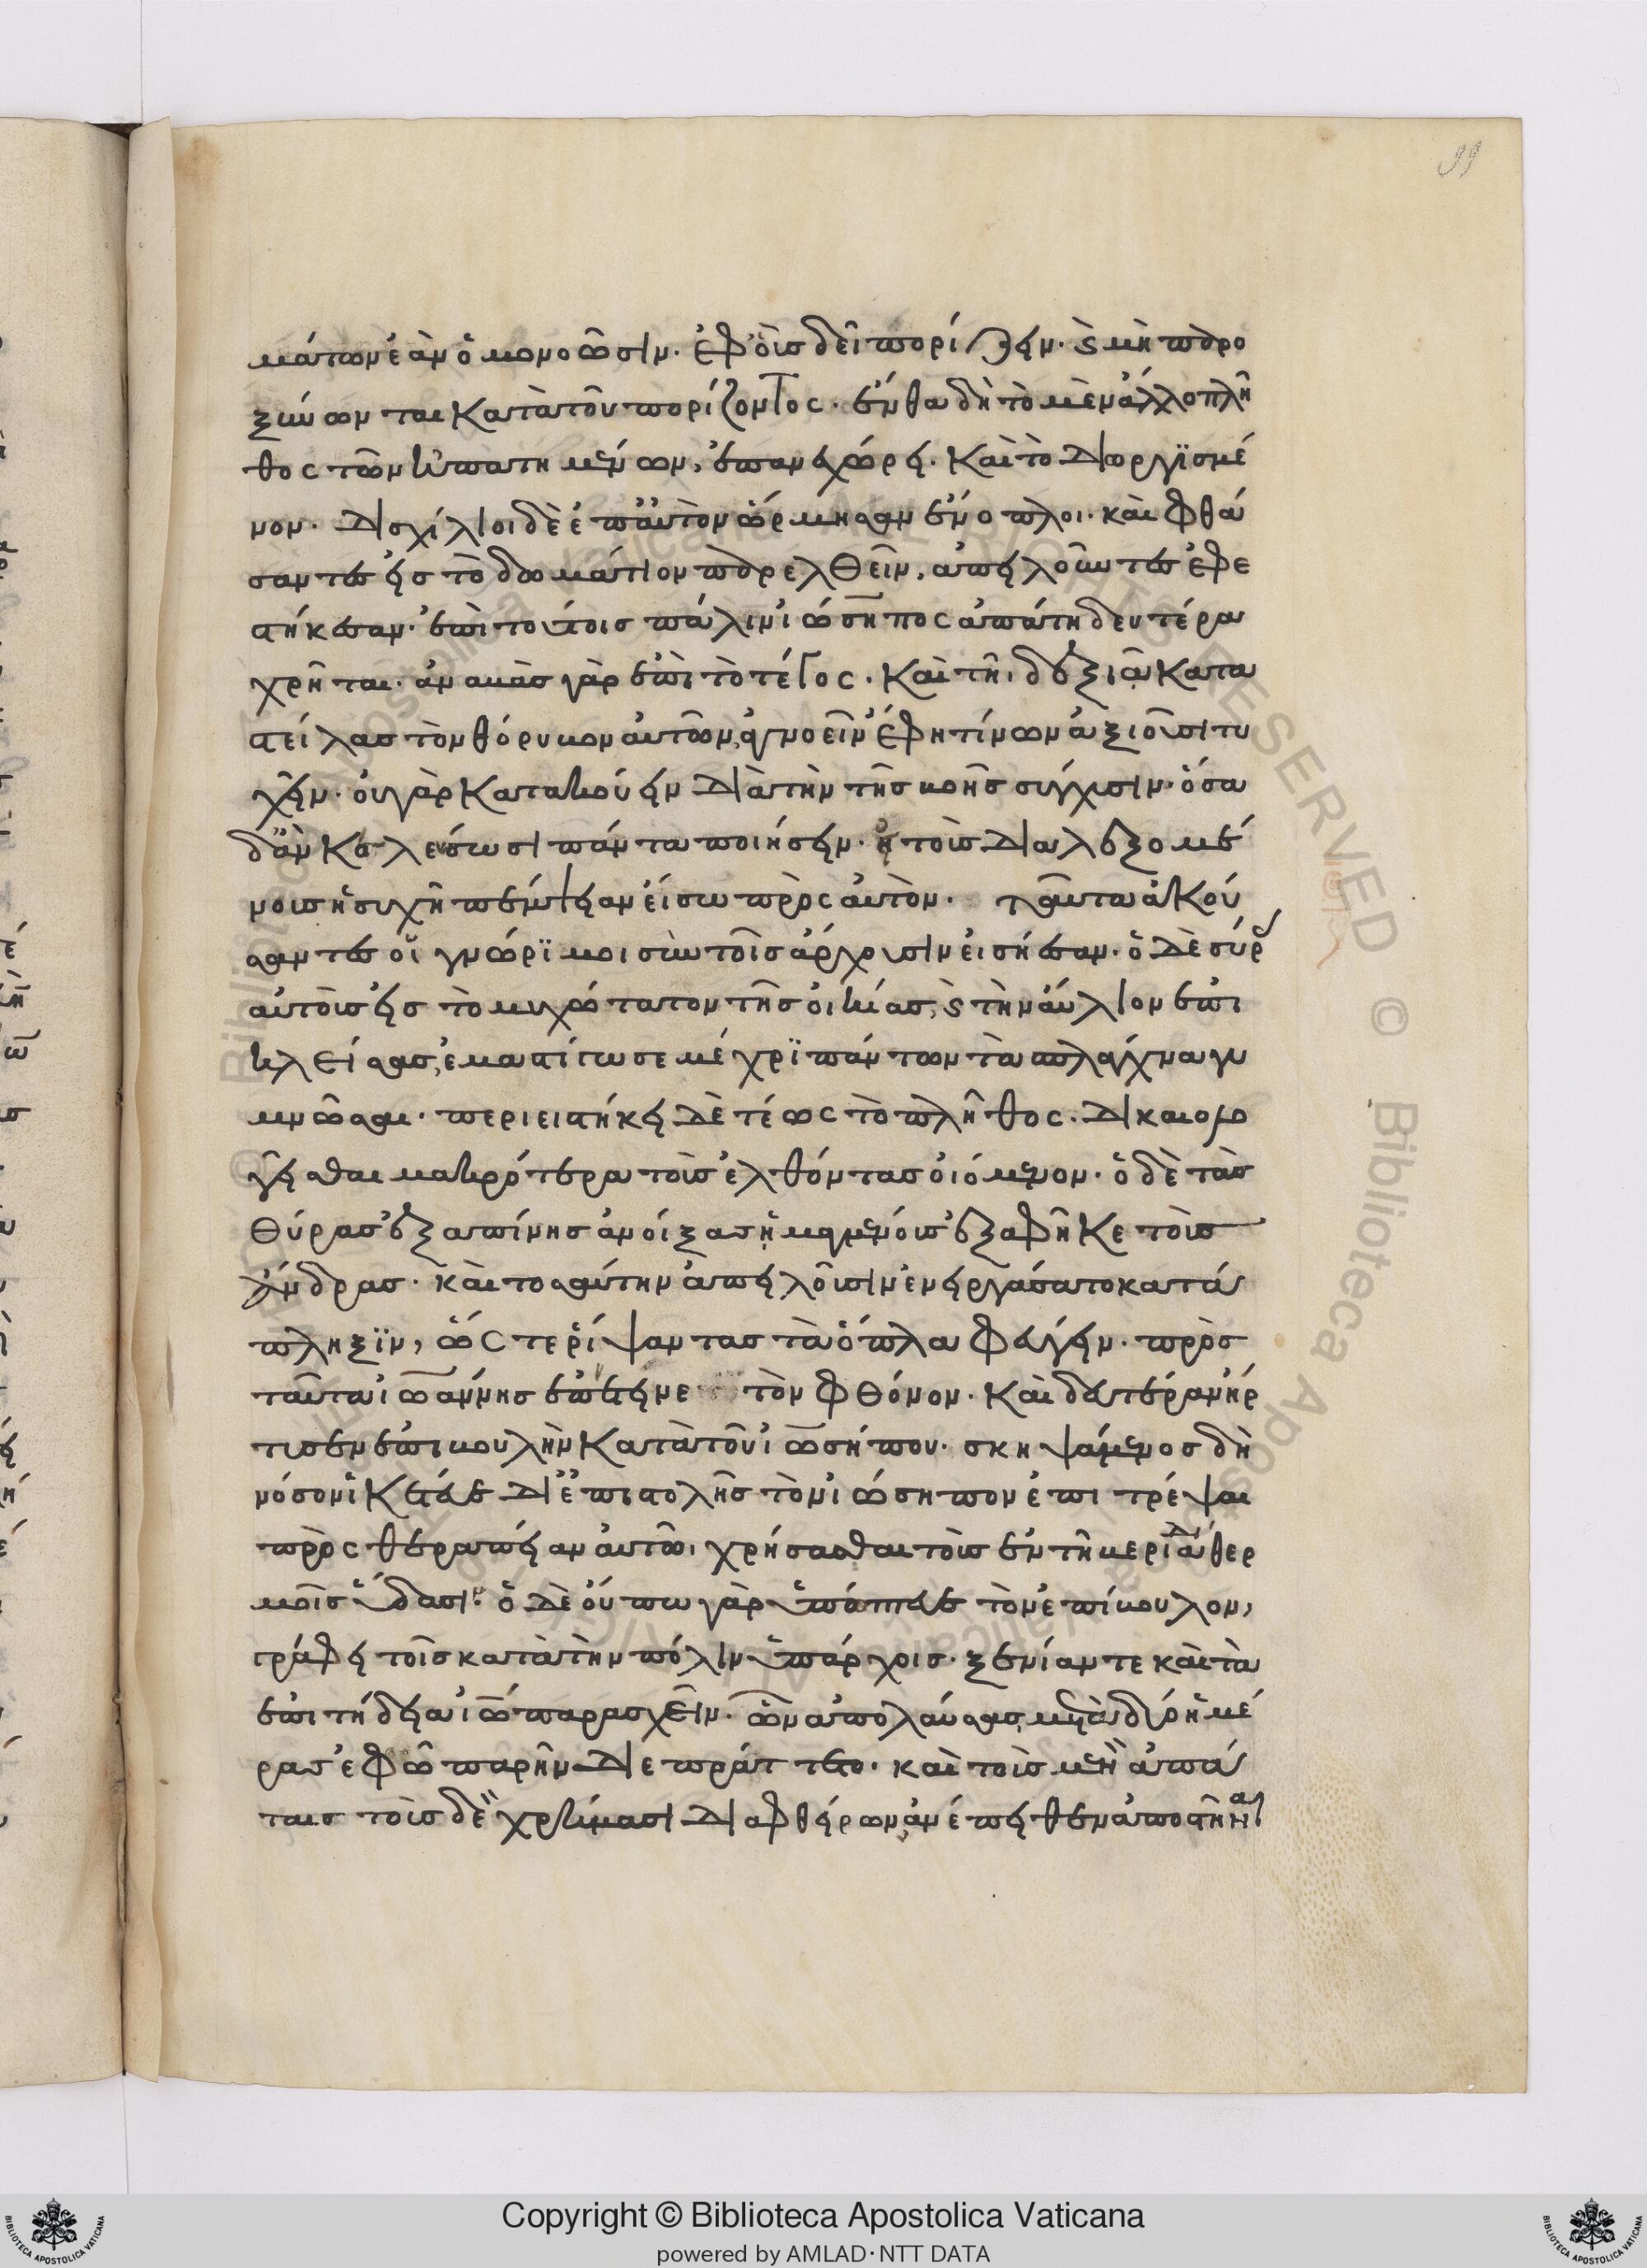 μάτων ἐὰν ὁμονοῶσιν. ἐφ' οἷς δεῖ πορίζειν. καὶ μὴ παρο
ξύνωνται κατὰ τοῦ πορίζοντος. ἔνθα δὴ τὸ μὲν ἄλλο πλῆ
θος τῶν ἠπατημένων, ἐπανεχώρει. καὶ τὸ διωργισμέ
νον. δισχίλιοι δὲ ἐπ' αὐτὸν ὥρμησαν ἔνοπλοι. καὶ φθά
σαντος εἰς τὸ δωμάτιον παρελθεῖν, ἀπειλοῦντες ἐφε
στήκεσαν. ἐπὶ τούτοις πάλιν ἰώσηπος ἀπάτη δευτέρα
χρῆται. ἀναβὰς γὰρ ἐπὶ τὸ τέγος. καὶ τῆι δεξιᾶ κατα
στείλας τὸν θόρυβον αὐτῶν, ἀγνοεῖν ἔφη τίνων ἀξιοῦσι τυ
χεῖν. οὐ γὰρ κατακούειν διὰ τὴν τῆς βοῆς σύγχυσιν. ὅσα
δ' ἂν κελεύσωσι πάντα ποιήσειν. εἰ τοὺς διαλεξομέ
νους ἡσυχῆ πέμψειαν εἴσω πρὸς αὐτόν. ταῦτα ἀκού
σαντες οἱ γνώριμοι σὺν τοῖς ἄρχουσιν εἰσήεσαν. ὁ δὲ σύρας
αὐτοὺς εἰς τὸ μυχώτατον τῆς οἰκίας, καὶ τὴν αὔλιον ἐπι
κλείσας, ἐμαστίγωσε μέχρι πάντων τὰ σπλάγχνα γυ
μνῶσαι. περιειστήκει δὲ τέως τὸ πλῆθος. δικαιολο
γεῖσθαι μακρότερα τοὺς ἐλθόντας οἰόμενον. ὁ δὲ τὰς
θύρας ἐξαπίνης ἀνοίξας ἡμαγμένους ἐξαφῆκε τοὺς
ἄνδρας. καὶ τοσαύτην ἀπειλοῦσιν ἐνειργάσατο κατά
πληξιν, ὥστε ῥίψαντας τὰ ὅπλα φεύγειν. πρὸς
ταῦτα ἰωάννης ἐπέτεινε τὸν φθόνον. καὶ δευτέραν ἤρ
τυσεν ἐπιβουλὴν κατὰ τοῦ ἰωσήπου. σκηψάμενος δὴ
νόσον ἱκέτευσε δι' ἐπιστολῆς τὸν ἰώσηπον ἐπιτρέψαι
πρὸς θεραπείαν αὐτῶι χρήσασθαι τοῖς ἐν τηβεριάδι θερ
μοῖς ὕδασιν. ὁ δὲ οὔπω γὰρ ὑπόπτευε τὸν ἐπίβουλον,
γράφει τοῖς κατὰ τὴν πόλιν ὑπάρχοις. ξενίαν τε καὶ τὰ
ἐπιτήδεια ἰω παρασχεῖν. ὧν ἀπολαύσας, μετὰ δύο ἡμέ
ρας ἐφ' ὧ παρῆν διεπράττετο. καὶ τοὺς μὲν ἀπά
ταις τοὺς δὲ χρήμασι διαφθείρων, ἀνέπειθεν ἀποστῆναι
99